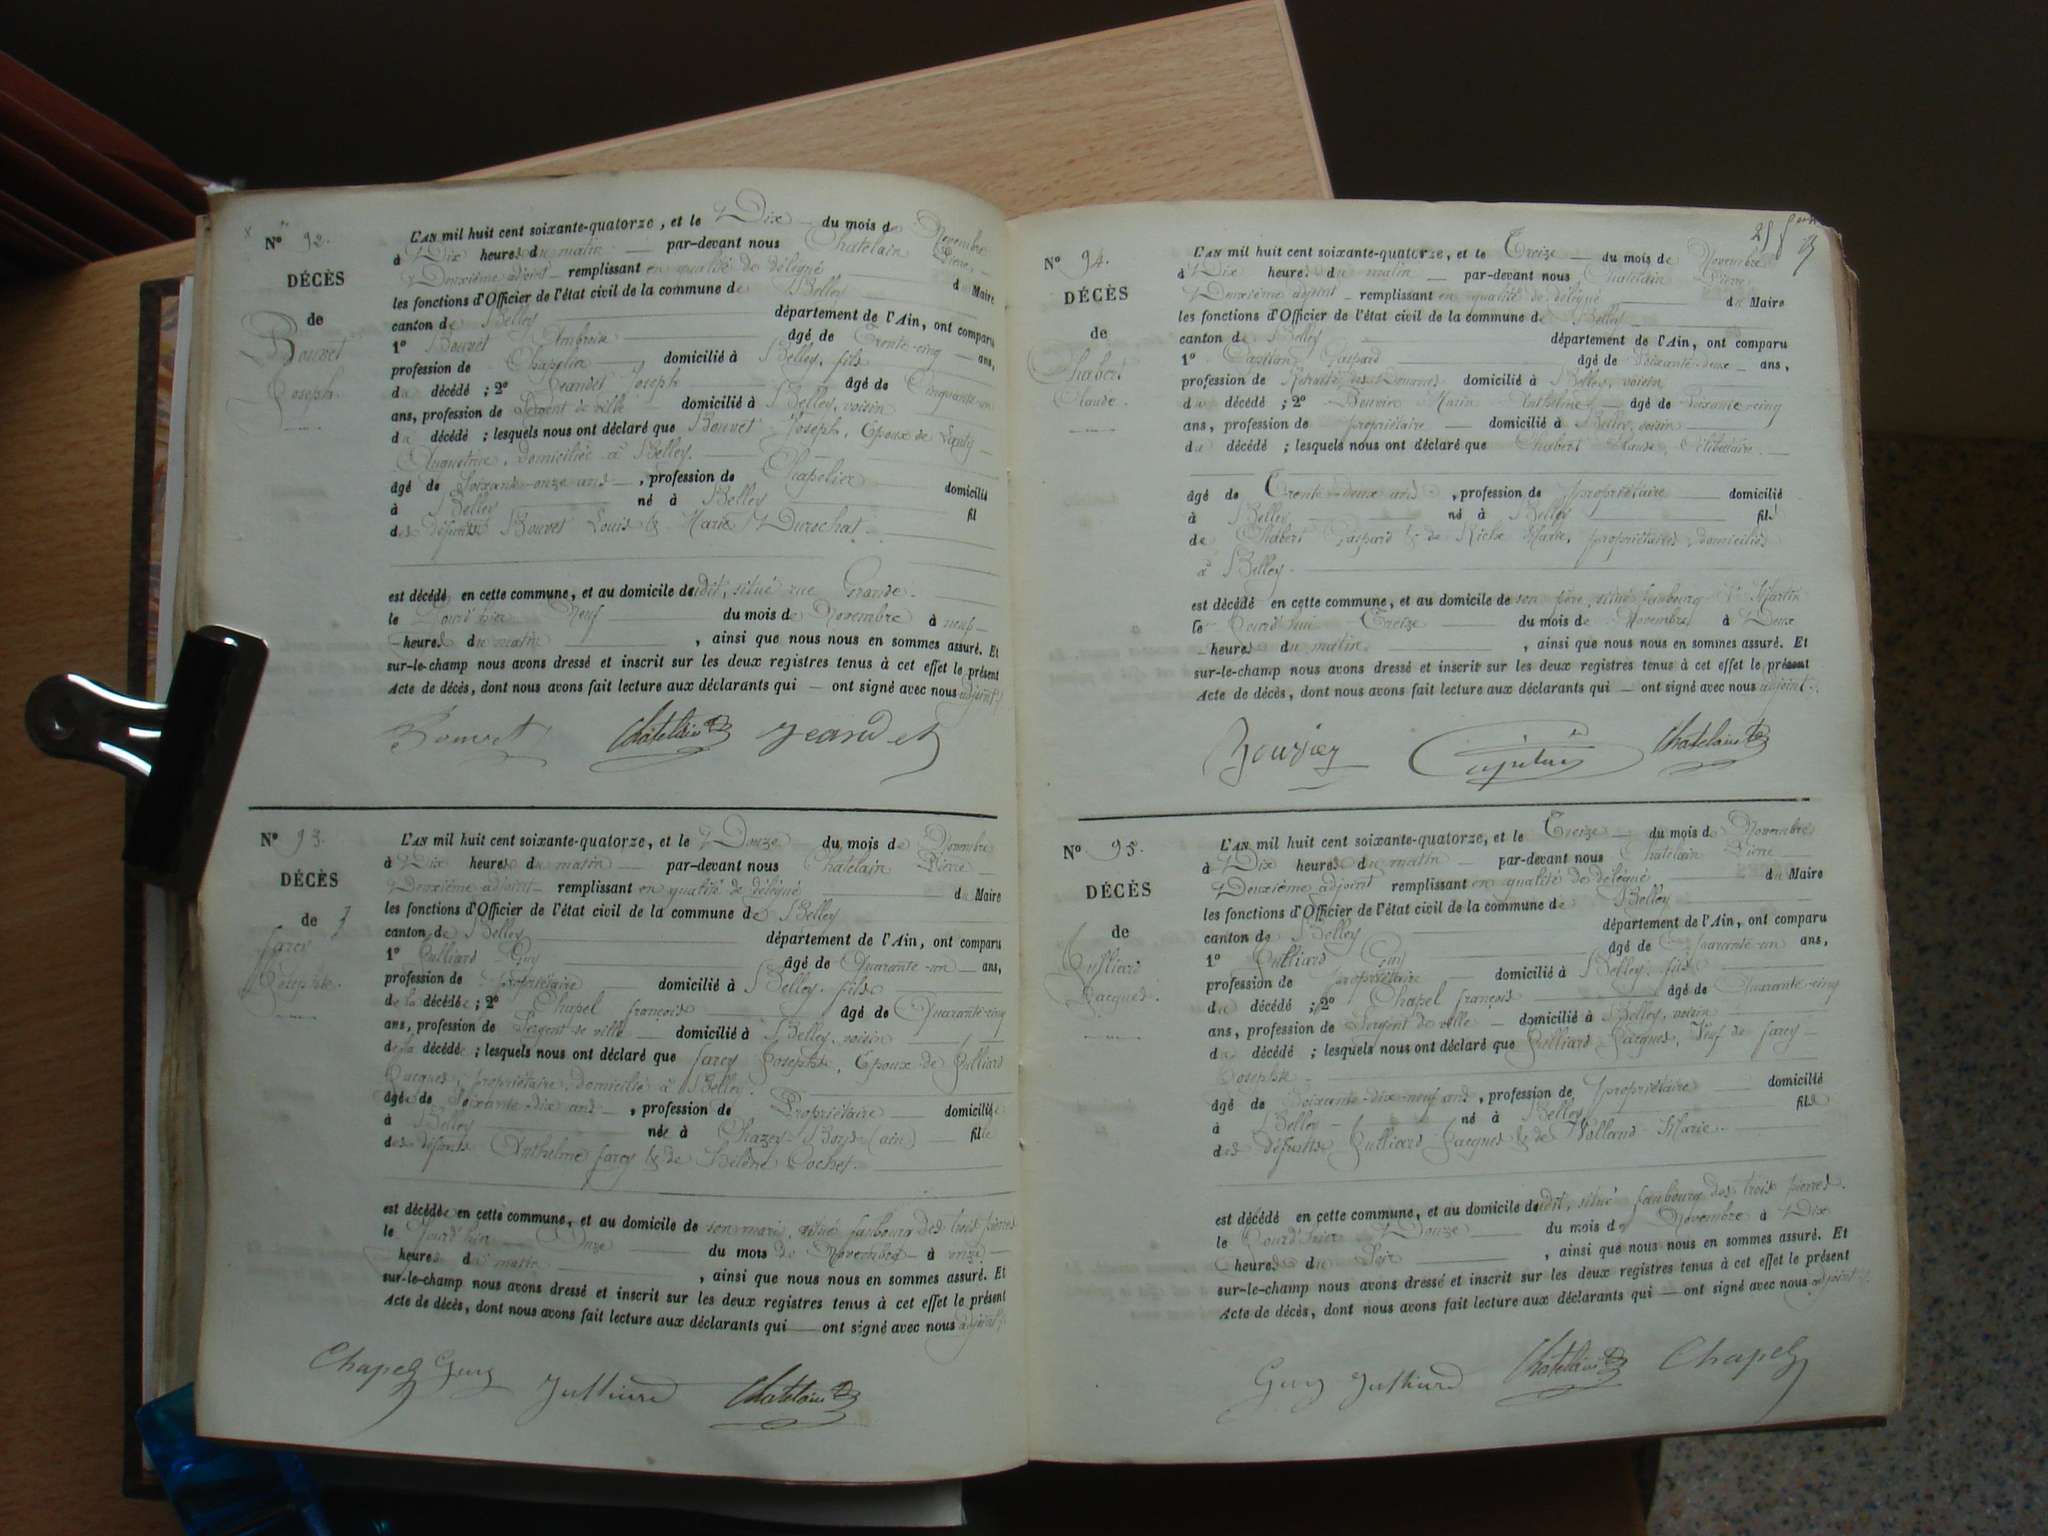 Nº 92.
DÉCÈS
de
Bouvet
Joseph.
L'AN mil huit cent soixante-quatorze, et le Dix du mois de Novembre
à Dix heures du matin par-devant nous Chatelain Pierre
Deuxième adjoint remplissant en qualité de délégué du Maire
les fonctions d'Officier de l'état civil de la commune de Belley
canton de Belley département de l'Ain, ont comparu
1º Bouvet Ambroise âgé de Trente-cinq ans,
profession de Chapelier, domicilié à Belley, fils
du décédé ; 2º Jeandet Joseph âgé de Cinquante-un
ans, profession de Sergent de ville domicilié à Belley, voisin
du décédé ; lesquels nous ont déclaré que Bouvet Joseph, Epoux de
Augustine, domiciliée à Belley.
âgé de Soixante-onze ans, profession de Chapelier domicilié
à Belley né à Belley fil
des défunts Bouvet Louis & Marie Durochat.
est décédé en cette commune, et au domicile dudit, situé rue Grande.
le Jourd'hier Neuf du mois de Novembre à neuf
heures du matin, ainsi que nous nous en sommes assuré. Et
sur-le-champ nous avons dressé et inscrit sur les deux registres tenus à cet effet le présent
Acte de décès, dont nous avons fait lecture aux déclarants qui — ont signé avec nous adjoint.
Bouvet Chatelain Jeandet
Nº 93.
DÉCÈS
de
Jarcy
Josephte.
L'AN mil huit cent soixante-quatorze, et le Douze du mois de Novembre
à Dix heures du matin par-devant nous Chatelain Pierre
Deuxième adjoint remplissant en qualité de délégué du Maire
les fonctions d'Officier de l'état civil de la commune de Belley
canton de Belley département de l'Ain, ont comparu
1º Julliard Guy âgé de Quarante-un ans,
profession de Propriétaire domicilié à Belley, fils
de la décédée ; 2º Chapel françois âgé de Quarante-cinq
ans, profession de Sergent de ville domicilié à Belley, voisin
de la décédée ; lesquels nous ont déclaré que Jarcy Josephte, Epoux de Julliard
Jacques, propriétaire, domicilié à Belley.
âgée de Soixante-dix ans, profession de Propriétaire domicilié
à Belley née à Chazey-Bons (ain) fille
des défunts Anthelme Jarcy & de Hélène Cochet.
est décédée en cette commune, et au domicile de son mari, situé faubourg des trois pierres
le Jourd'hier Onze du mois de Novembre à onze
heures du matin, ainsi que nous nous en sommes assuré. Et
sur-le-champ nous avons dressé et inscrit sur les deux registres tenus à cet effet le présent
Acte de décès, dont nous avons fait lecture aux déclarants qui — ont signé avec nous adjoint.
Chapel Guy Julliard Chatelain
Nº 94.
DÉCÈS
de
Chabert
Claude.
L'AN mil huit cent soixante-quatorze, et le Treize du mois de Novembre
à Dix heures du matin par-devant nous Chatelain Pierre
Deuxième adjoint remplissant en qualité de délégué du Maire
les fonctions d'Officier de l'état civil de la commune de Belley
canton de Belley département de l'Ain, ont comparu
1º Gaspard âgé de Soixante-deux ans,
profession de Retraité des Douanes domicilié à Belley, voisin
du décédé ; 2º Bouvier Marin Anthelme âgé de Soixante-cinq
ans, profession de propriétaire domicilié à Belley, voisin
du décédé ; lesquels nous ont déclaré que Chabert Claude, Célibataire.
âgé de Trente-deux ans, profession de propriétaire domicilié
à Belley né à Belley fils
de Chabert Gaspard & de Riche Marie, propriétaires, domiciliés
à Belley.
est décédé en cette commune, et au domicile de son père, situé faubourg St Martin
le Jourd'hui Treize du mois de Novembre à Deux
heures du matin, ainsi que nous nous en sommes assuré. Et
sur-le-champ nous avons dressé et inscrit sur les deux registres tenus à cet effet le présent
Acte de décès, dont nous avons fait lecture aux déclarants qui — ont signé avec nous adjoint.
Bouvier Chatelain
Nº 95.
DÉCÈS
de
Julliard
Jacques.
L'AN mil huit cent soixante-quatorze, et le Treize du mois de Novembre
à Dix heures du matin par-devant nous Chatelain Pierre
Deuxième adjoint remplissant en qualité de délégué du Maire
les fonctions d'Officier de l'état civil de la commune de Belley
canton de Belley département de l'Ain, ont comparu
1º Julliard Guy âgé de Quarante-un ans,
profession de propriétaire domicilié à Belley, fils
du décédé ; 2º Chapel françois âgé de Quarante-cinq
ans, profession de Sergent de ville domicilié à Belley, voisin
du décédé ; lesquels nous ont déclaré que Julliard Jacques, Veuf de Jarcy
Josephte
âgé de Soixante-dix-neuf ans, profession de propriétaire domicilié
à Belley né à Belley fils
des défunts Julliard Jacques & de Volland Marie.
est décédé en cette commune, et au domicile dudit, situé faubourg des trois pierres.
le Jourd'hier Douze du mois de Novembre à Dix
heures du Soir, ainsi que nous nous en sommes assuré. Et
sur-le-champ nous avons dressé et inscrit sur les deux registres tenus à cet effet le présent
Acte de décès, dont nous avons fait lecture aux déclarants qui — ont signé avec nous adjoint.
Guy Julliard Chatelain Chapel